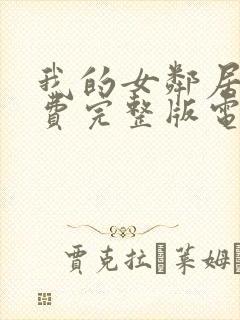 我的女鄰居
費完整版電
賈克拉 萊姆